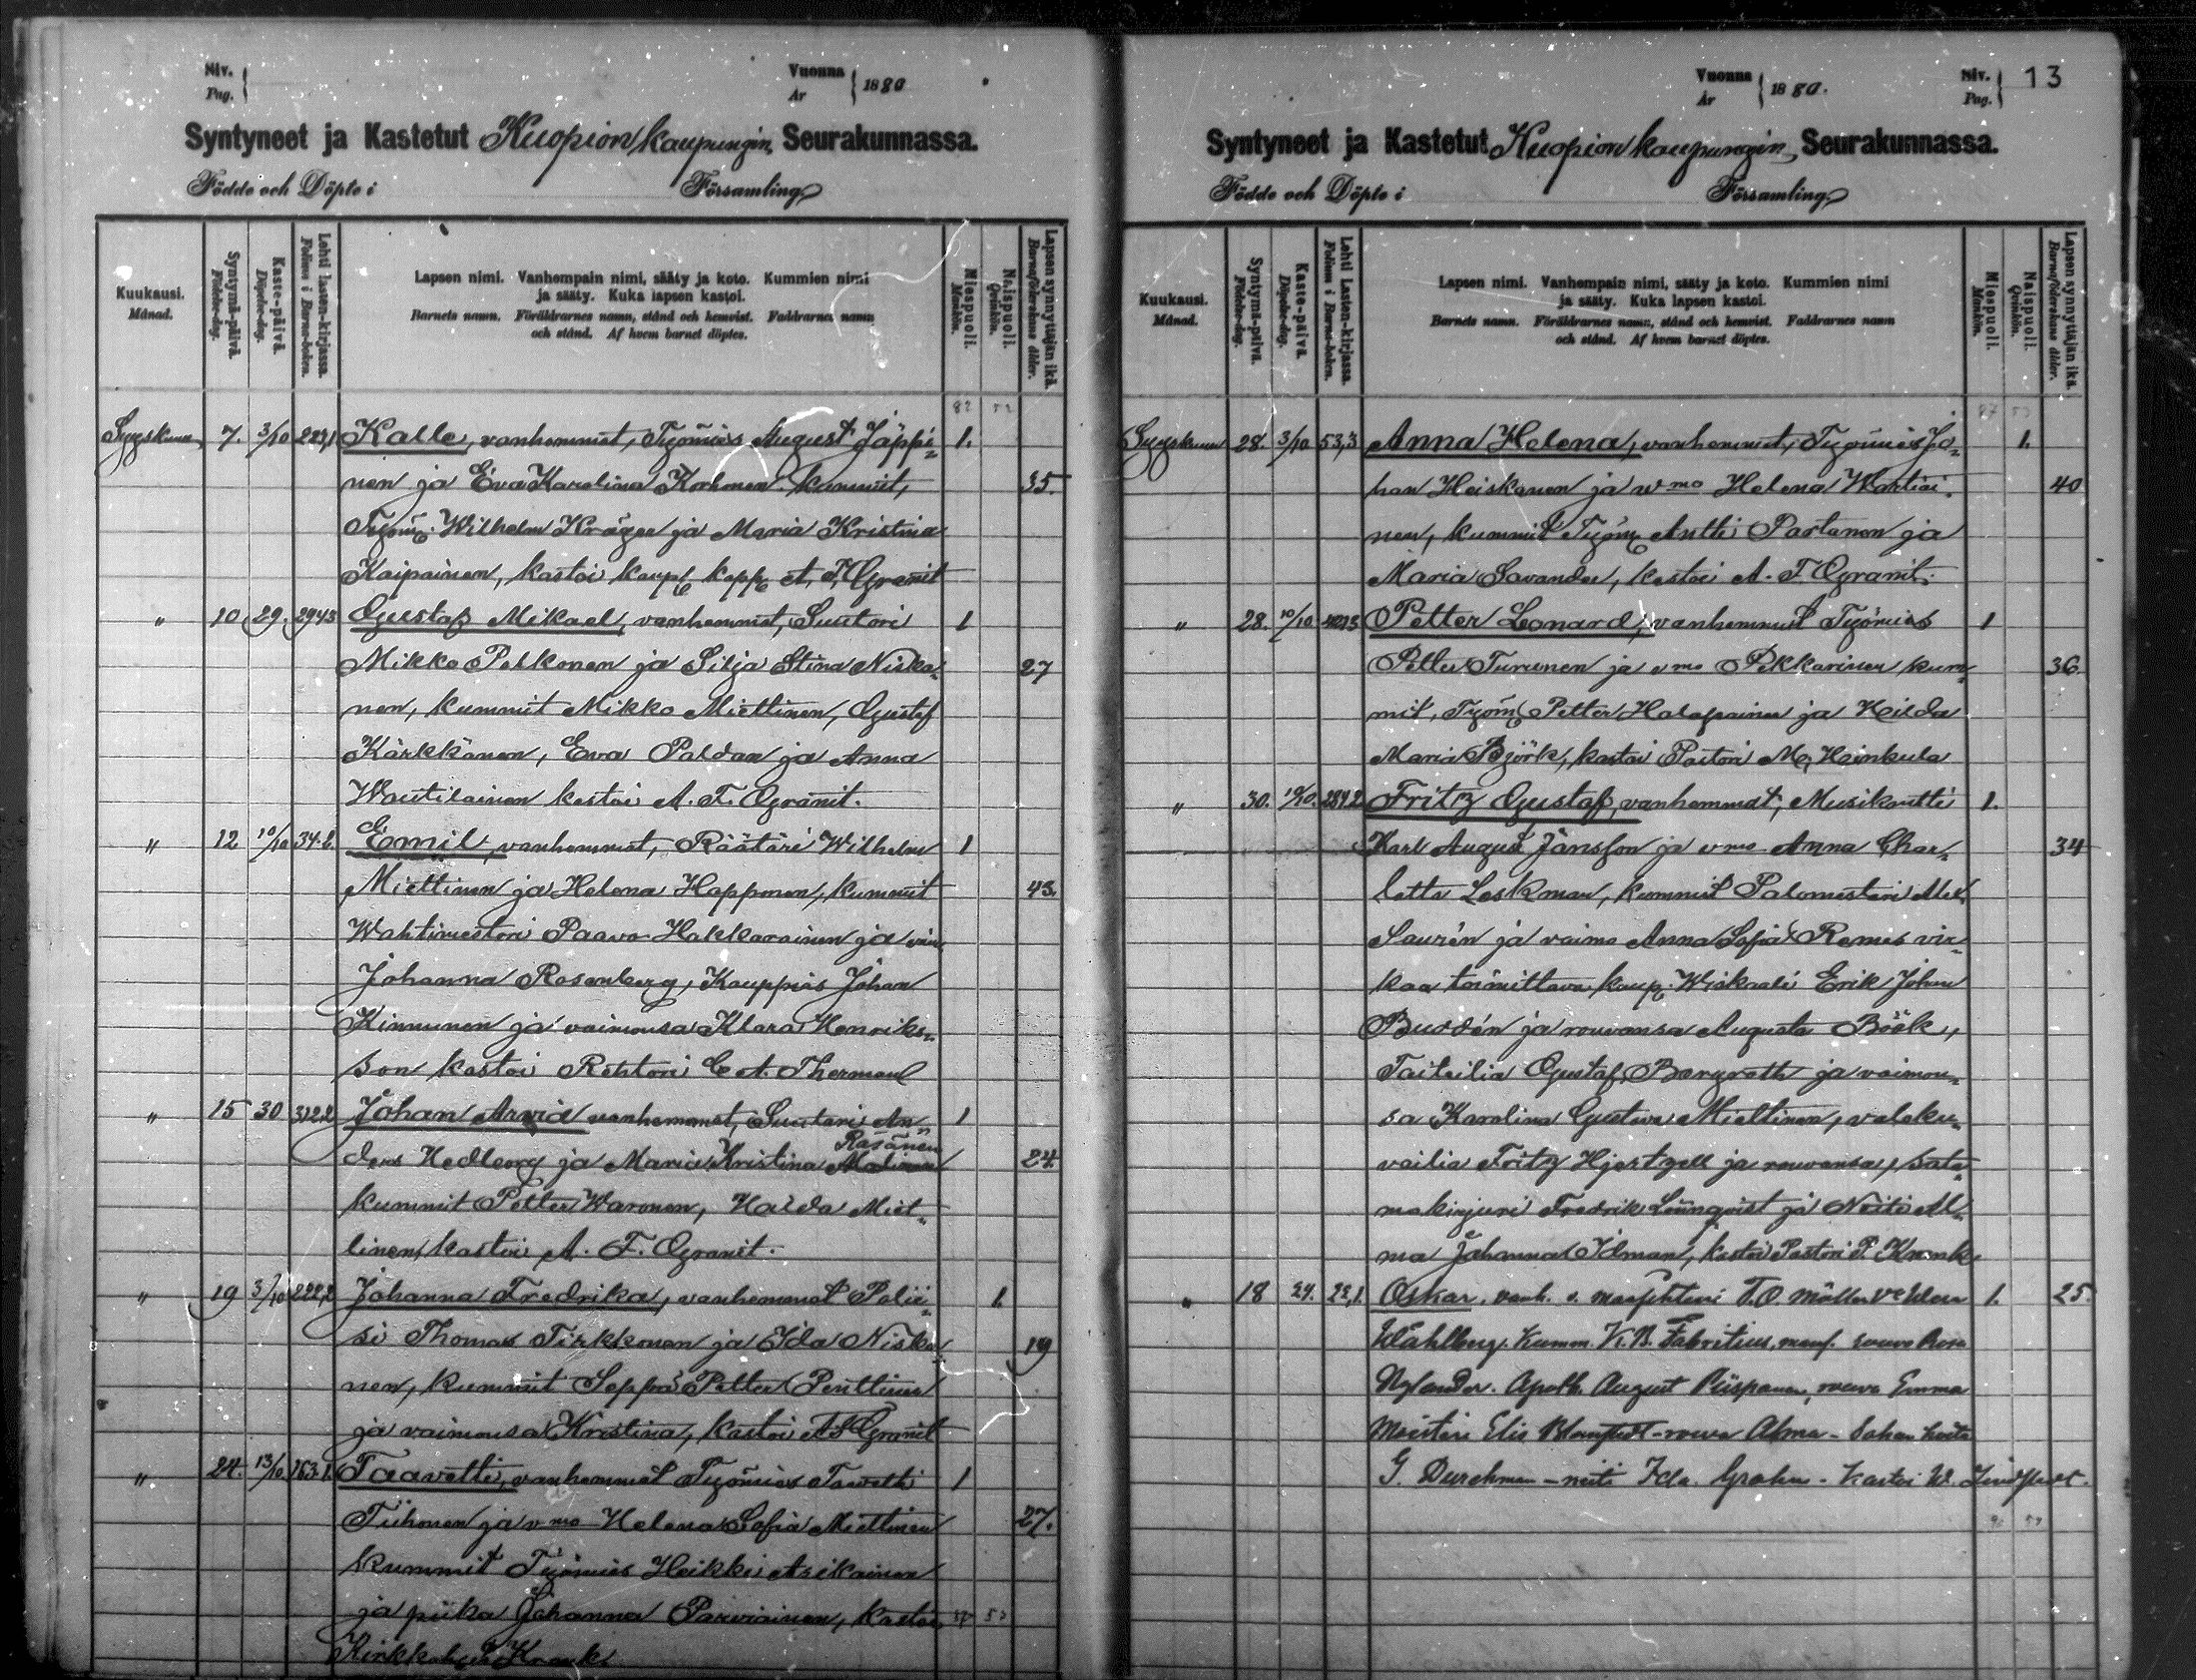 Niv.
Pag.
Vuonna
År
1880
Syntyneet ja Kastetut Kuopion kaupungin Seurakunnassa.
Födde och Döpte i Församling
Kuukausi.
Månad.
Syntymä-päivä.
Födelse-dag.
Kaste-päivä.
Döpelse-dag.
Lehti Lasten-kirjassa.
Folium i Barna-boken.
Lapsen nimi. Vanhempain nimi, sääty ja koto. Kummien nimi
ja sääty. Kuka lapsen kastoi.
Barnets namn. Föräldrarnes namn, stånd och hemvist. Faddrarnes namn
och stånd. Af hvem barnet döptes.
Miespuoli.
Mankön.
Naispuoli.
Qvinkön.
Lapsen synnyttäjän ikä.
Barnaföderskans ålder.
Syyskuu 7. 3/10 Kalle, vanhemmat, Työmies August Jäppi- 1.
nen ja Eva Karolina Korhonen. kummit, 35.
Työm. Wilhelm Kröger ja Maria Kristina
Kaipainen, kastoi kaup. kapp. A. F. Granit
" 10 29. 294,3 Gustaf Mikael, vanhemmat, Suutari 1
Mikko Pelkonen ja Silja Stina Niska- 27
nen, kummit Mikko Miettinen, Gustaf
Kärkkänen, Eva Paldan ja Anna
Wautilainen kastoi A. F. Granit.
" 12 10/10 34. Emil, vanhemmat, Räätäri Wilhelm 1
Miettinen ja Helena Happonen, kummit 43.
Wahtimestari Paavo Hakkarainen ja vaim
Johanna Rosenberg, Kauppias Johan
Kinnunen ja vaimonsa Klara Henriks-
son kastoi Rehtori C. A. Therman
" 15 30 312,2 Johan Arvid vanhemmat, Suutari An- 1
Räsänen
ders Hedberg ja Maria Kristina 24
kummit Petter Waronen, Halda Miet-
tinen, kastoi A. F. Granit.
" 19 3/10 222,2 Johanna Fredrika, vanhemmat Polii- 1.
si Thomas Tirkkonen ja Ida Niska- 19
nen, kummit Seppä Petter Penttinen
ja vaimonsa Kristina, kastoi A F Granit
" 24. 13/10 163.1. Taavetti, vanhemmat Työmies Taavetti 1
Tiihonen ja vmo Helena Sofia Miettinen 27.
Kummit Työmies Heikki Asikainen
ja piika Johanna Parviainen, kastoi
Kirkkoh. P. Krank
Vuonna
År
1880.
Niv.
Pag.
13
Syntyneet ja Kastetut Kuopion kaupungin Seurakunnassa.
Födde och Döpte i Församling
Kuukausi.
Månad.
Syntymä-päivä.
Födelse-dag.
Kaste-päivä.
Döpelse-dag.
Lehti Lasten-kirjassa.
Folium i Barna-boken.
Lapsen nimi. Vanhempain nimi, sääty ja koto. Kummien nimi
ja sääty. Kuka lapsen kastoi.
Barnets namn. Föräldrarnes namn, stånd och hemvist. Faddrarnes namn
och stånd. Af hvem barnet döptes.
Miespuoli.
Mankön.
Naispuoli.
Qvinkön.
Lapsen synnyttäjän ikä.
Barnaföderskans ålder.
Syyskuu 28. 3/10 53,3 Anna Helena, vanhemmat, Työmies Jo- 1.
han Heiskanen ja vmo Helena Wartiai- 40
nen, kummit Työm. Antti Partanen ja
Maria Savander, kastoi A. F. Granit.
" 28. 10/10 Petter Leonard, vanhemmat Työmies 1
Petter Turunen ja vmo Pekkarinen kum- 36.
mit, Työm. Petter Halapainen ja Heilda
Maria Björk, kastoi Pastori M. Heinkula
" 30. 10/10. 284,2 Fritz Gustaf, vanhemmat, Musikantti 1.
Karl August Jansson ja vmo Anna Char- 34
lotta Leskman, kummit Palomestari Alex.
Saurén ja vaimo Anna Sofia Remes vir-
kaa toimittava kaup. Wiskaali Erik Johan
Buddén ja rouvansa Augusta Böök,
Taiteilia Gustaf Bergroth ja vaimon-
sa Karolina Gustava Miettinen, valoku-
vailia Fritz Hjertzell ja rouvansa, Sata-
makirjuri Fredrik Lönnqvist ja Neiti Al-
ma Johanna Idman, kastoi Pastori P. Krank
" 18 24. 22,1. Oskar, vanh. T. O. Möller 1. 25.
Wahlberg. Kumm. K. B. Fabritius, rouva Rosa
Nylander. Apoth. August Piispanen, rouva Emma
Elis Blomstedt - rouva Alma -
G. Durchman - neiti Ida Grahn - Kastoi W. Lindstedt.